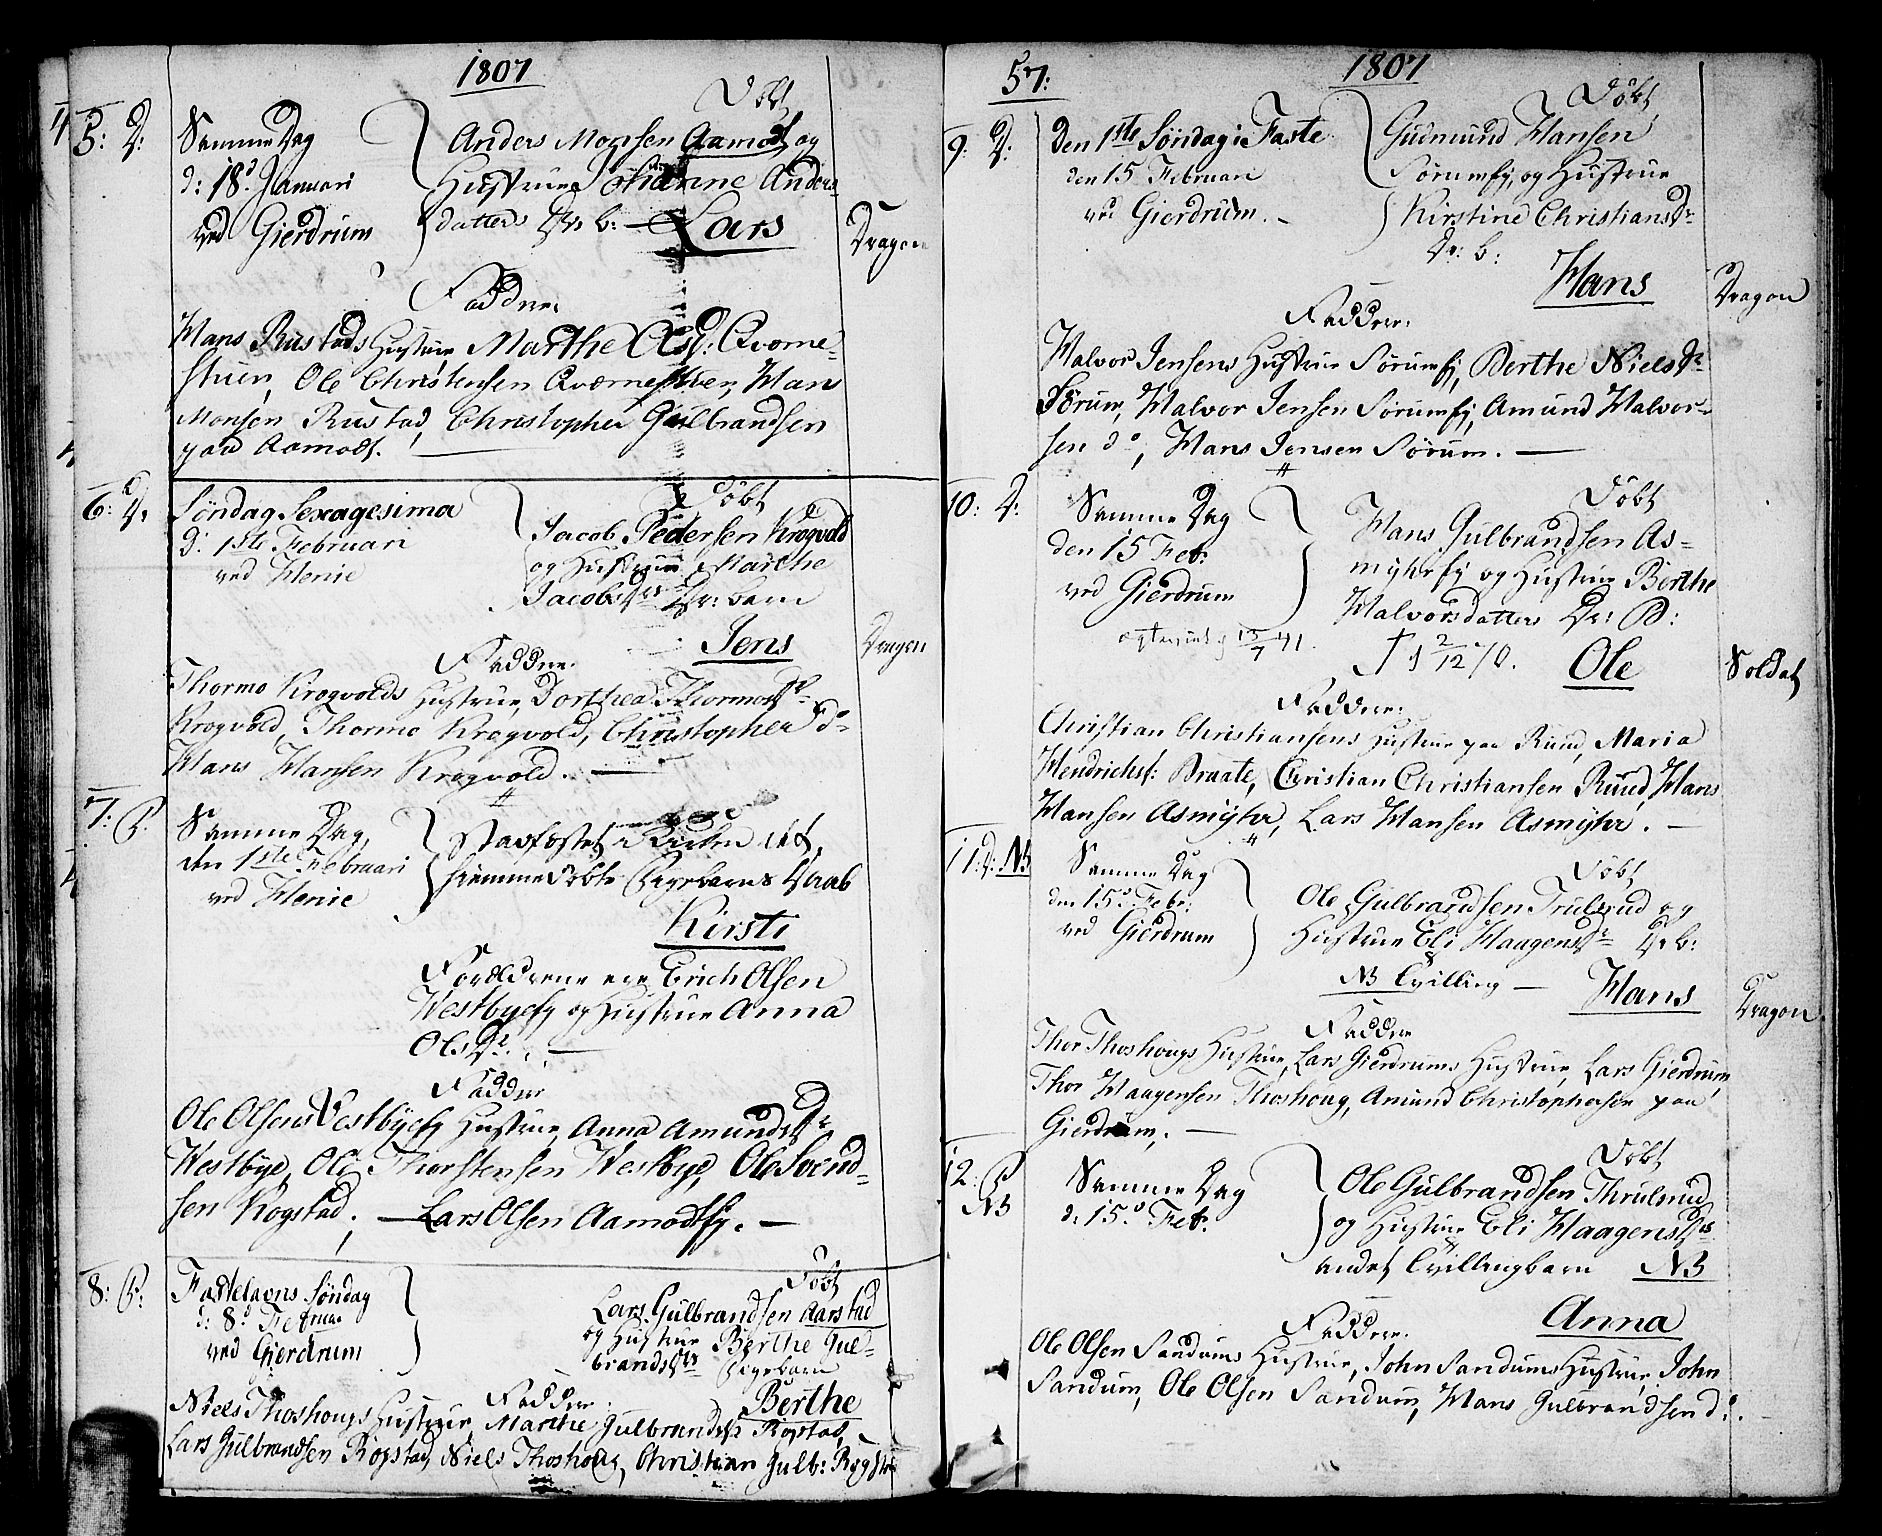 1807
Döbt
5: D: Samme Dag
d: 18d Januari
ved Gierdrum
Anders Monsen Aamodt og
Hustrue Johanne Anders-
datters Dr: b: Lars
Dragon
Faddere
Hans Rustads Hustrue, Marthe Olsd: Qværne-
stuen, Ole Christensen Qværnestuen, Hans
Monsen Rustad, Christopher Gulbrandsen
paa Aamodt.
6: D: Søndag Sexagesima
d: 1ste Februari
ved Henie
Døbt
Jacob Pedersen Krogvold
og Hustrue Marthe
Jacobs Drs Dr: barn
Jens
Dragon
Faddere
Thormo Krogvolds Hustrue, Dorthea Thormods Dr
Krogvold, Thormo Krogvold, Christopher do
Hans Hansen Krogvold.
7: P: Samme Dag,
den 1ste Februari
ved Henie
Stadfæstet i Kirken det
hiemmedøbte Pigebarns Daab
Kirsti
Forældrene ere Erich Olsen
Westbyefy og Hustrue Anna
Ols Dr.
Fadder
Ole Olsens Vestbyefy Hustrue, Anna Amunds Dr
Westbye, Ole Thorstensen Westbye, Ole Svend-
sen Kogstad, Lars Olsen Aamodtfy.
8: P: Fastelavns Søndag
d: 8d Februar
ved Gierdrum
Døbt
Lars Gulbrandsen Aarstad
og Hustrue Berthe Gul-
brands Drs Pigebarn
Berthe
Faddere
Niels Thoshougs Hustrue, Marthe Gulbrandsd: Rogstad,
Lars Gulbrandsen Rogstad, Niels Thoshoug, Christian Gulb: Rogstad
57: 1807
9: D: Den 1ste Søndag i Faste
den 15 Februari
ved Gierdrum.
Døbt
Gudmund Hansen
Sørumfy, og Hustrue
Kirstine Christians Dr
Dr: b:
Hans
Dragon
Faddere.
Halvor Jensens Hustrue Sørumfy, Berthe Niels Dr
Sørum, Halvor Jensen Sørumfy, Amund Halvor-
sen do, Hans Jensen Sørum.
10: D: Samme Dag
den 15 Feb.
ved Gierdrum
Døbt
Hans Gulbrandsen As-
myhrfy og Hustrue Berthe
Halvorsdatters Dr: B:
† d 2/12 70. Ole
Soldat
Faddere:
Christian Christiansens Hustrue paa Ruud, Maria
Hendrichsd: Braate, Christian Christiansen Ruud, Hans
Hansen Asmyhr, Lars Hansen Asmyhr.
11: D: NB Samme Dag
den 15d Febr:
ved Gierdrum
Døbt
Ole Gulbrandsen Trulsrud og
Hustrue Eli Haagens Dr Dr b:
NB Tvilling — Hans
Dragon
Faddere
Thor Thoshougs Hustrue, Lars Gierdrums Hustrue, Lars Gierdrum,
Thor Haagensen Thoshoug, Amund Christophersen paa
Gierdrum.
12: P: NB Samme Dag
d: 15d Feb.
Døbt
Ole Gulbrandsen Thrulsrud
og Hustrue Eli Haagens Drs
andet Tvillingbarn NB
Anna
Faddere.
Ole Olsen Sandums Hustrue, John Sandums Hustrue, John
Sandum, Ole Olsen Sandum, Hans Gulbrandsen do.